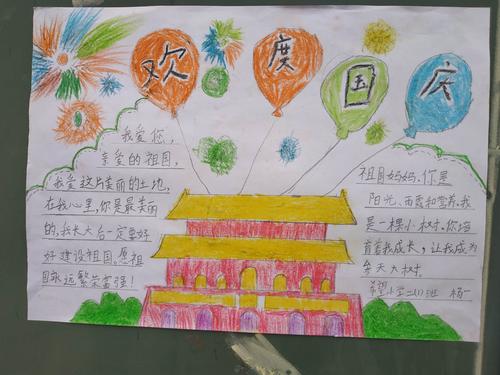 欢度国庆
我爱您，
亲爱的祖国，
我爱这片美丽的土地，
在我心里，你是最美丽
的，我长大后一定要好
好建设祖国，愿祖
国永远繁荣富强！
祖国妈妈，你是
阳光、雨露和营养，我
是一棵小树。你培
育着我成长，让我成为
参天大树。
希望小学二(1)班 杨一